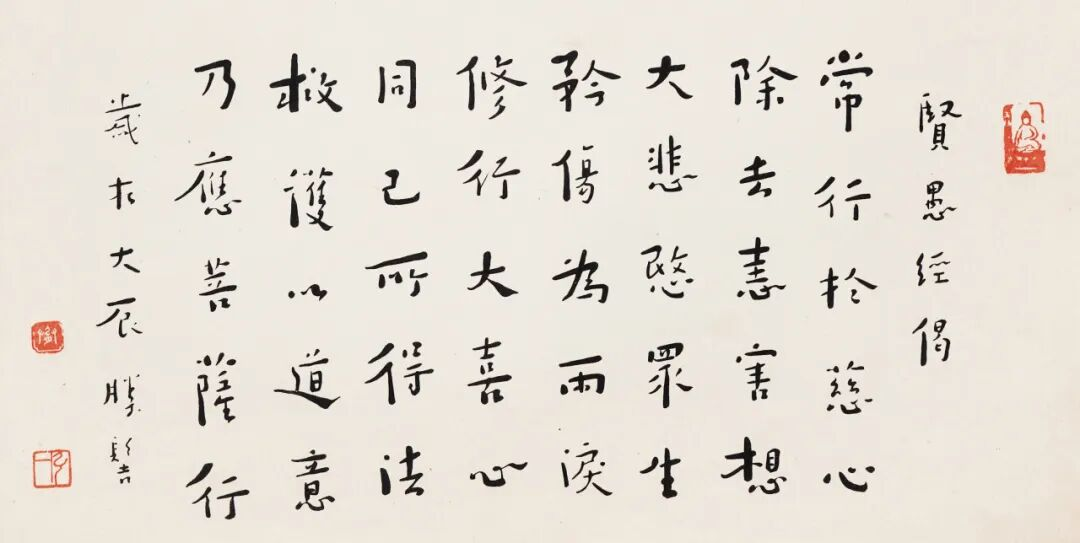 賢愚經偈
常行於慈心
除去恚害想
大悲愍眾生
矜傷為雨淚
修行大喜心
同己所得法
救護以道意
乃應菩薩行
歲在大辰 勝髻